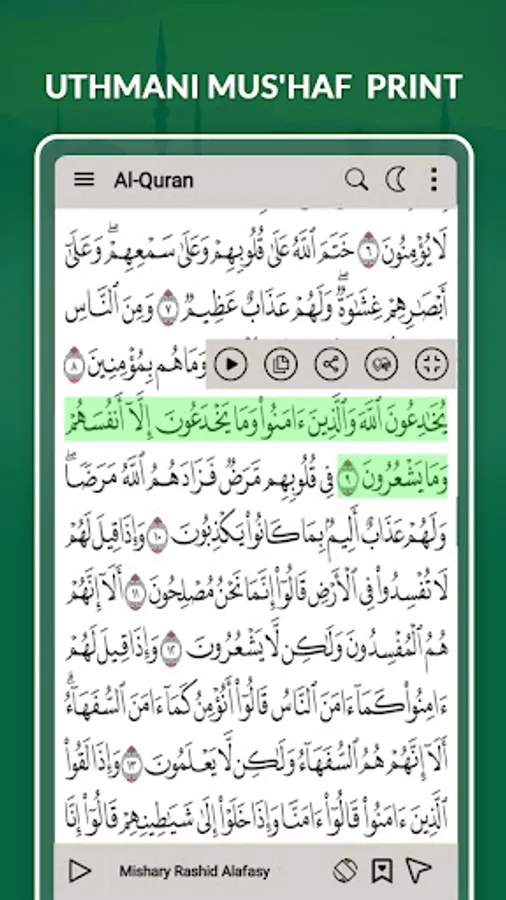 UTHMANI MUS'HAF PRINT
Al-Quran
لَا يُؤْمِنُونَ ٦ خَتَمَ ٱللَّهُ عَلَىٰ قُلُوبِهِمْ وَعَلَىٰ سَمْعِهِمْ ۖ وَعَلَىٰٓ
أَبْصَٰرِهِمْ غِشَٰوَةٌ ۖ وَلَهُمْ عَذَابٌ عَظِيمٌ ٧ وَمِنَ ٱلنَّاسِ
وَمَا هُم بِمُؤْمِنِينَ ٨
يُخَٰدِعُونَ ٱللَّهَ وَٱلَّذِينَ ءَامَنُوا۟ وَمَا يَخْدَعُونَ إِلَّآ أَنفُسَهُمْ
وَمَا يَشْعُرُونَ ٩ فِى قُلُوبِهِم مَّرَضٌ فَزَادَهُمُ ٱللَّهُ مَرَضًا ۖ
وَلَهُمْ عَذَابٌ أَلِيمٌۢ بِمَا كَانُوا۟ يَكْذِبُونَ ١٠ وَإِذَا قِيلَ لَهُمْ
لَا تُفْسِدُوا۟ فِى ٱلْأَرْضِ قَالُوٓا۟ إِنَّمَا نَحْنُ مُصْلِحُونَ ١١ أَلَآ إِنَّهُمْ
هُمُ ٱلْمُفْسِدُونَ وَلَٰكِن لَّا يَشْعُرُونَ ١٢ وَإِذَا قِيلَ لَهُمْ
ءَامِنُوا۟ كَمَآ ءَامَنَ ٱلنَّاسُ قَالُوٓا۟ أَنُؤْمِنُ كَمَآ ءَامَنَ ٱلسُّفَهَآءُ ۗ
أَلَآ إِنَّهُمْ هُمُ ٱلسُّفَهَآءُ وَلَٰكِن لَّا يَعْلَمُونَ ١٣ وَإِذَا لَقُوا۟
ٱلَّذِينَ ءَامَنُوا۟ قَالُوٓا۟ ءَامَنَّا وَإِذَا خَلَوْا۟ إِلَىٰ شَيَٰطِينِهِمْ قَالُوٓا۟ إِنَّا
Mishary Rashid Alafasy